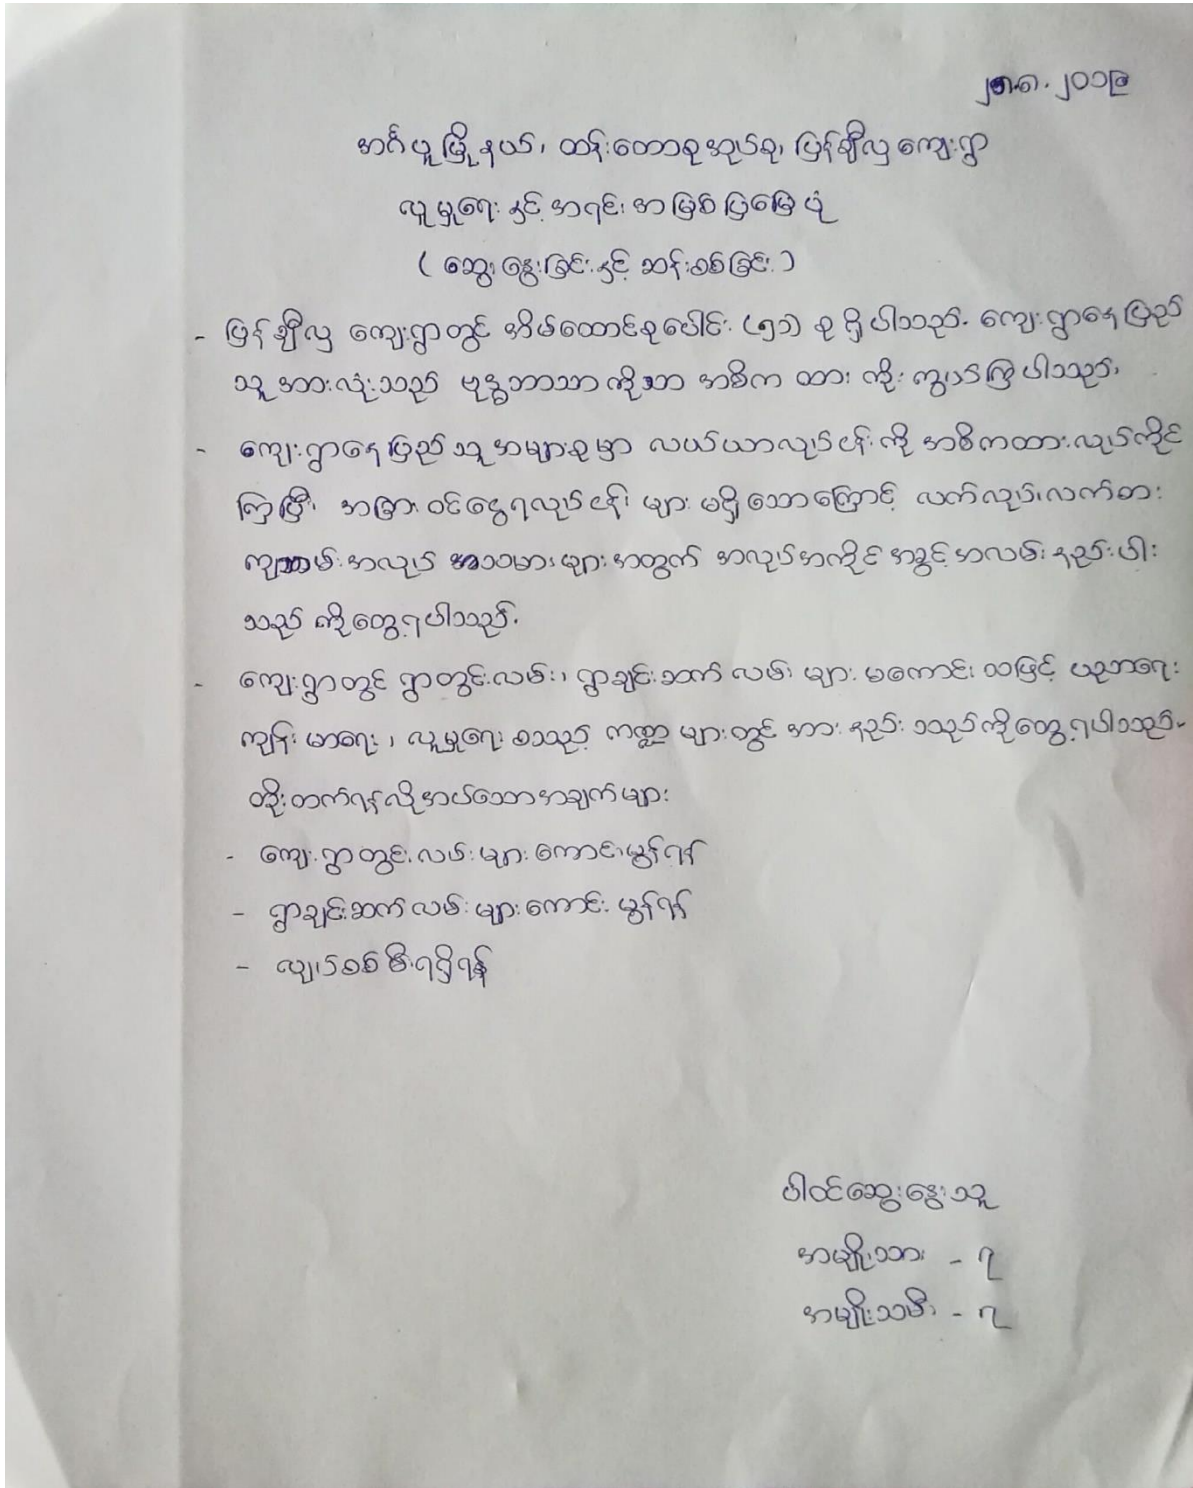 အင်္ဂပူမြို့နယ်၊ ထန်းတောစုအုပ်စု၊ ပြန်ချီလှကျေးရွာ
လူမှုရေးနှင့် အရင်းအမြစ်ပြမြေပုံ
(ဆွေးနွေးခြင်းနှင့် ဆန်းစစ်ခြင်း)
- ပြန်ချီလှ ကျေးရွာတွင် အိမ်ထောင်စုပေါင်း (၅၁) စု ရှိပါသည်။ ကျေးရွာနေပြည်
သူအားလုံးသည် ဗုဒ္ဓဘာသာကိုသာ အဓိကထား ကိုးကွယ်ကြပါသည်။
- ကျေးရွာနေပြည်သူအများစုမှာ လယ်ယာလုပ်ငန်းကို အဓိကထားလုပ်ကိုင်
ကြပြီး အခြားဝင်ငွေရလုပ်ငန်းများ မရှိသောကြောင့် လက်လုပ်၊လက်စား
ကျပမ်းအလုပ် သမားများအတွက် အလုပ်အကိုင်အခွင့်အလမ်းနည်းပါး
သည်ကိုတွေ့ရပါသည်။
- ကျေးရွာတွင် ရွာတွင်းလမ်း၊ ရွာချင်းဆက်လမ်းများ မကောင်းသဖြင့် ပညာရေး
ကျန်းမာရေး၊ လူမှုရေး စသည့် ကဏ္ဍများတွင် အားနည်းသည်ကိုတွေ့ရပါသည်။
တိုးတက်ရန်လိုအပ်သောအချက်များ
- ကျေးရွာတွင်းလမ်းများကောင်းမွန်ရန်
- ရွာချင်းဆက်လမ်းများကောင်းမွန်ရန်
- လျှပ်စစ်မီးရရှိရန်
ပါဝင်ဆွေးနွေးသူ
အမျိုးသား - ၇
အမျိုးသမီး - ၇